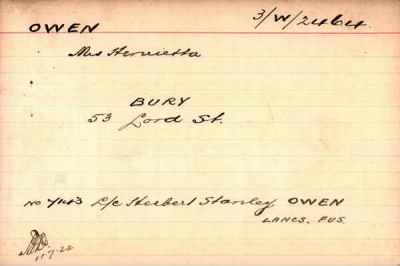 OWEN 3/W/2464.
Mrs Henrietta
BURY
53 Lord St.
No L/c Herbert Stanley OWEN
LANCS. FUS.
11.7.22